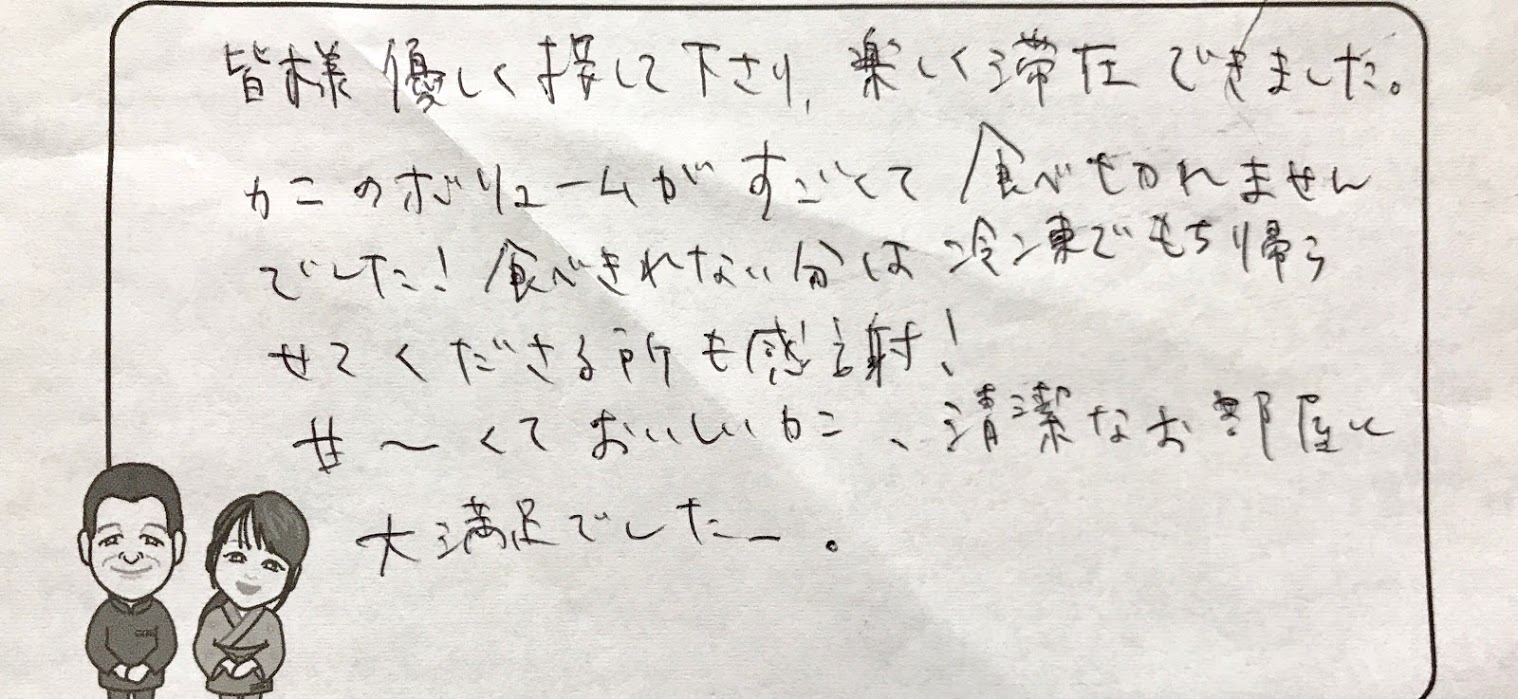 皆様 優しく接して下さり、楽しく滞在できました。
カニのボリュームがすごくて食べきれません
でした！食べきれない分は冷凍でもち帰ら
せてくださる所も感謝！
甘〜くておいしいカニ、清潔なお部屋に
大満足でしたー。